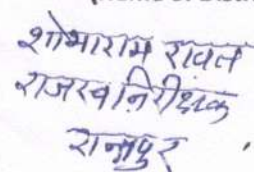 शोभाराम रावत
राजस्व निरीक्षक
रानापुर